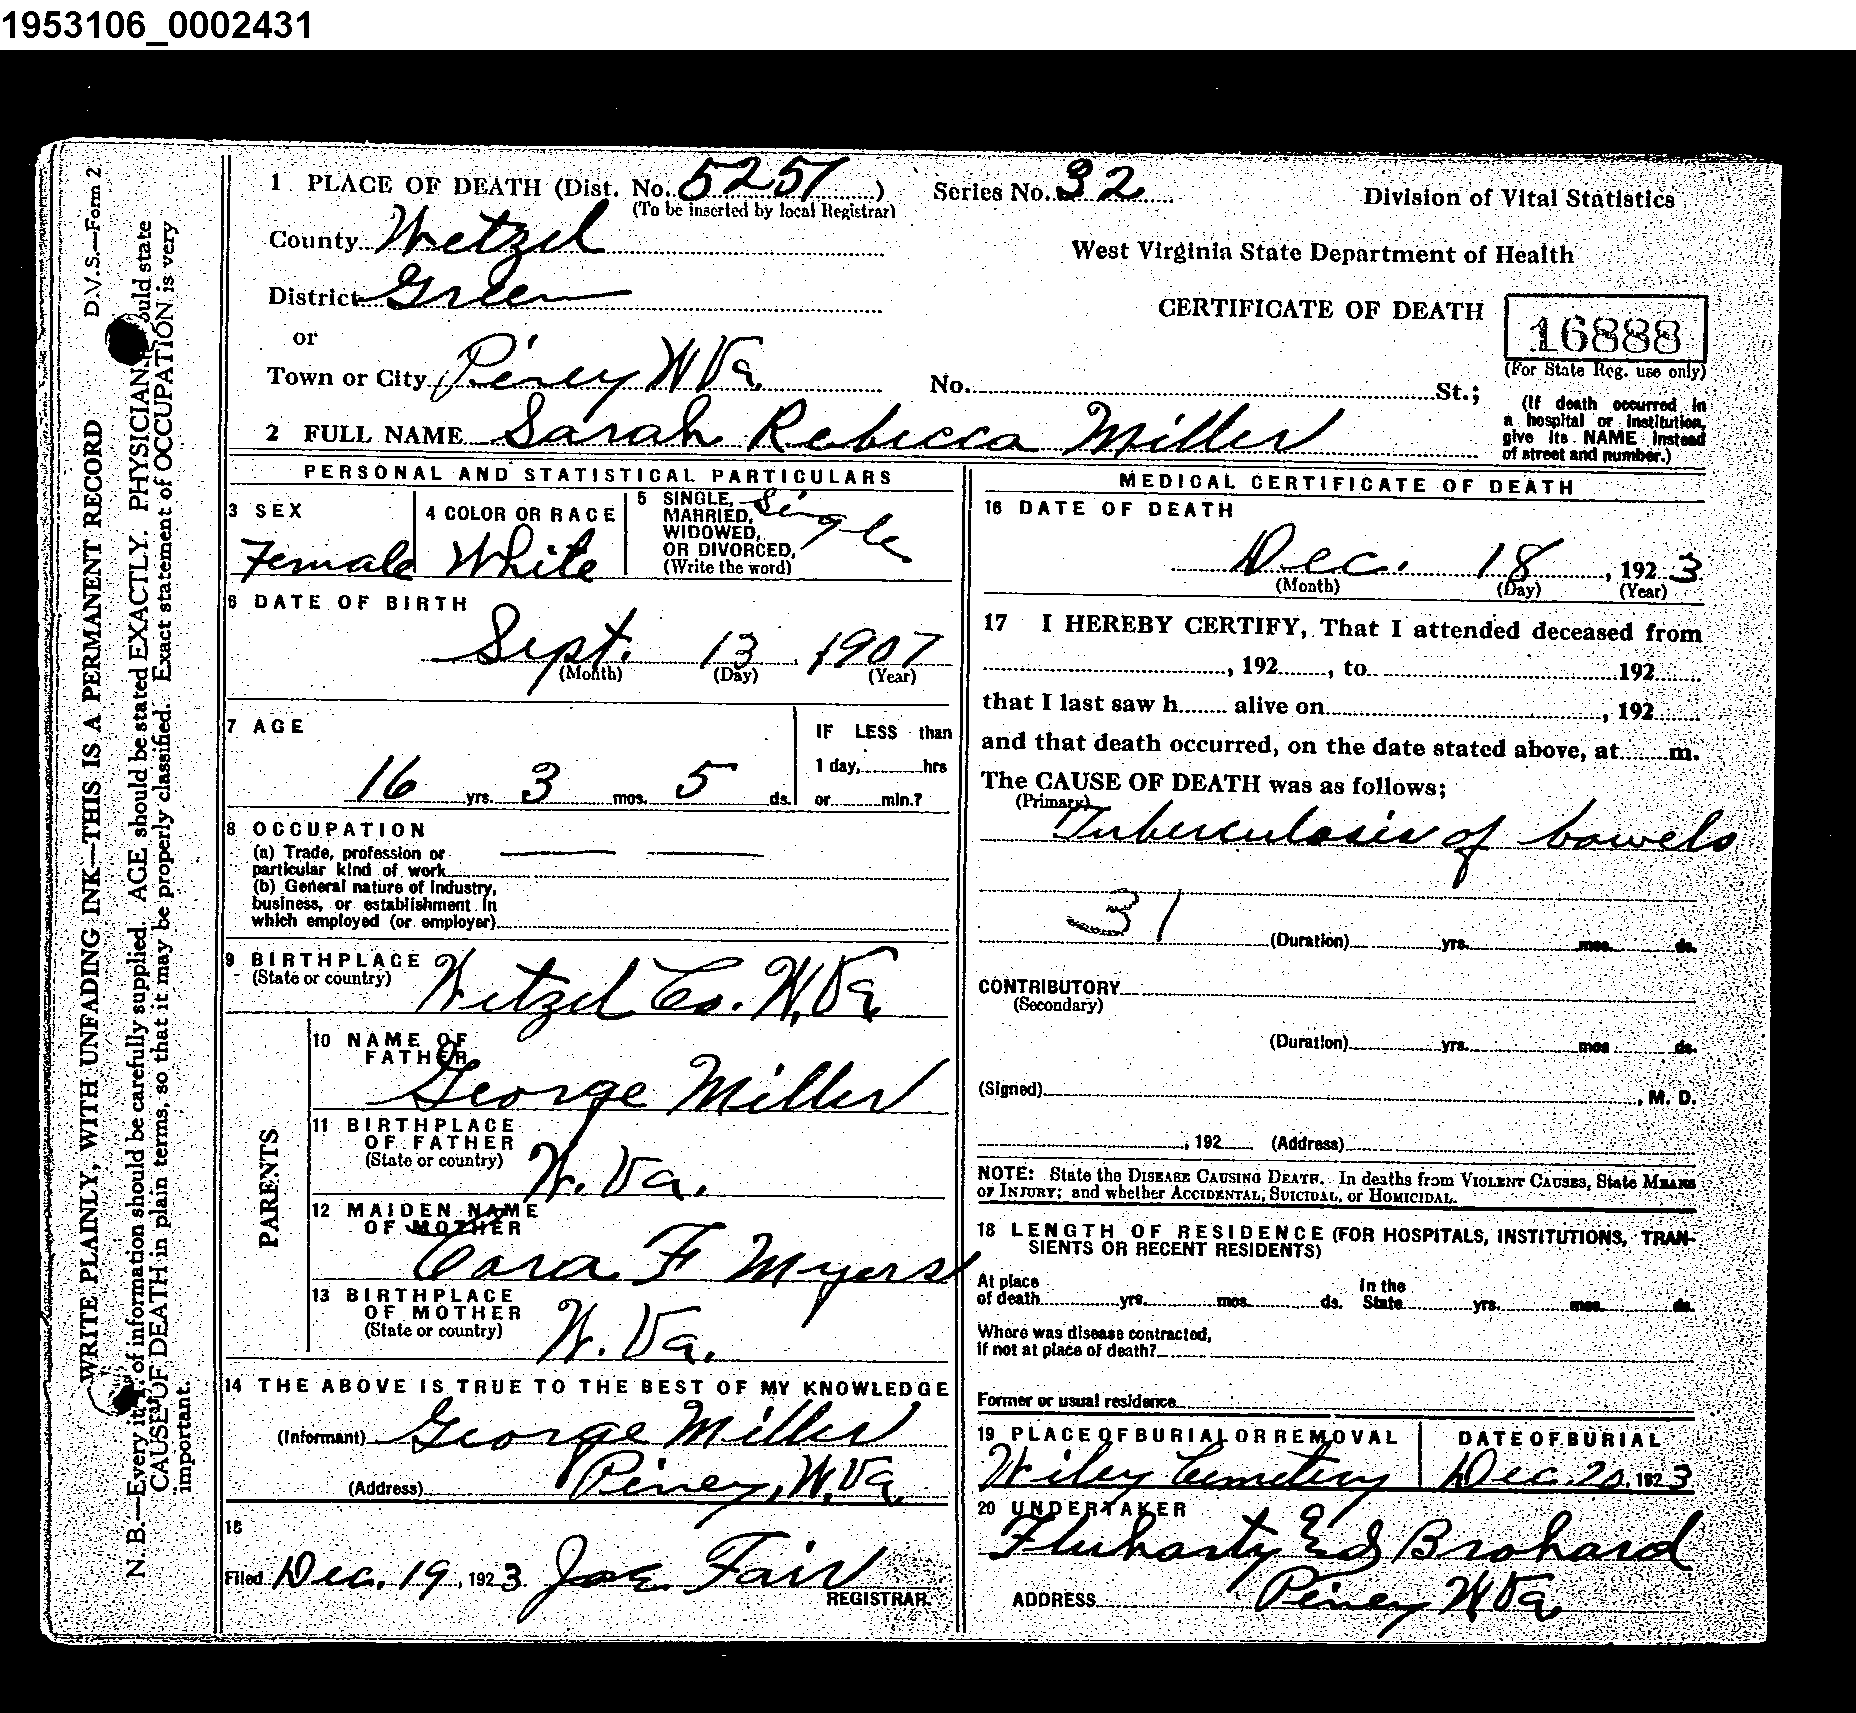 1953106_0002431
D.V.S.—Form 2
WRITE PLAINLY, WITH UNFADING INK—THIS IS A PERMANENT RECORD
N. B.—Every it of information should be carefully supplied. AGE should be stated EXACTLY. PHYSICIANS ould state
CAUSE OF DEATH in plain terms, so that it may be properly classified. Exact statement of OCCUPATION is very
important.
1 PLACE OF DEATH (Dist. No. 5251) Series No. 32
(To be inserted by local Registrar)
Division of Vital Statistics
County Wetzel
West Virginia State Department of Health
District Green
CERTIFICATE OF DEATH
16888
(For State Reg. use only)
or
Town or City Piney W Va. No. St.;
(If death occurred in
a hospital or institution,
give its NAME instead
of street and number.)
2 FULL NAME Sarah Rebecca Miller
PERSONAL AND STATISTICAL PARTICULARS
3 SEX
Female
4 COLOR OR RACE
White
5 SINGLE,
MARRIED,
WIDOWED,
OR DIVORCED,
(Write the word)
Single
6 DATE OF BIRTH
Sept. 13, 1907
(Month) (Day) (Year)
7 AGE
16 yrs. 3 mos. 5 ds.
IF LESS than
1 day, hrs
or min.?
8 OCCUPATION
(a) Trade, profession or
particular kind of work
(b) General nature of industry,
business, or establishment in
which employed (or employer)
9 BIRTHPLACE
(State or country)
Wetzel Co. W. Va
PARENTS
10 NAME OF
FATHER
George Miller
11 BIRTHPLACE
OF FATHER
(State or country)
W. Va.
12 MAIDEN NAME
OF MOTHER
Cora F Myers
13 BIRTHPLACE
OF MOTHER
(State or country)
W. Va.
14 THE ABOVE IS TRUE TO THE BEST OF MY KNOWLEDGE
(Informant) George Miller
(Address) Piney, W. Va.
15
Filed Dec. 19, 1923. Joe Fair
REGISTRAR.
MEDICAL CERTIFICATE OF DEATH
16 DATE OF DEATH
Dec. 18, 1923
(Month) (Day) (Year)
17 I HEREBY CERTIFY, That I attended deceased from
, 192 , to 192
that I last saw h alive on , 192
and that death occurred, on the date stated above, at m.
The CAUSE OF DEATH was as follows;
(Primary)
Tuberculosis of bowels
31
(Duration) yrs. mos. ds.
CONTRIBUTORY
(Secondary)
(Duration) yrs. mos ds.
(Signed) , M. D.
, 192 (Address)
NOTE: State the DISEASE CAUSING DEATH. In deaths from VIOLENT CAUSES, State MEANS
OF INJURY; and whether ACCIDENTAL, SUICIDAL, or HOMICIDAL.
18 LENGTH OF RESIDENCE (FOR HOSPITALS, INSTITUTIONS, TRAN-
SIENTS OR RECENT RESIDENTS)
At place
of death yrs. mos. ds.
In the
State yrs. mos. ds.
Where was disease contracted,
if not at place of death?
Former or usual residence
19 PLACE OF BURIAL OR REMOVAL
Wiley Cemetery
DATE OF BURIAL
Dec. 20, 1923
20 UNDERTAKER
Fluharty Brohard
ADDRESS Piney W Va.